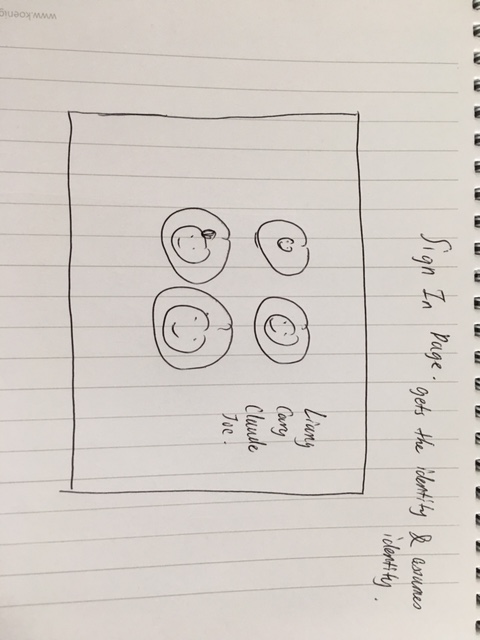 Sign In page. gets the identity & assumes
identity.
Liang
Cary
Claude
Joe.
www.koenig